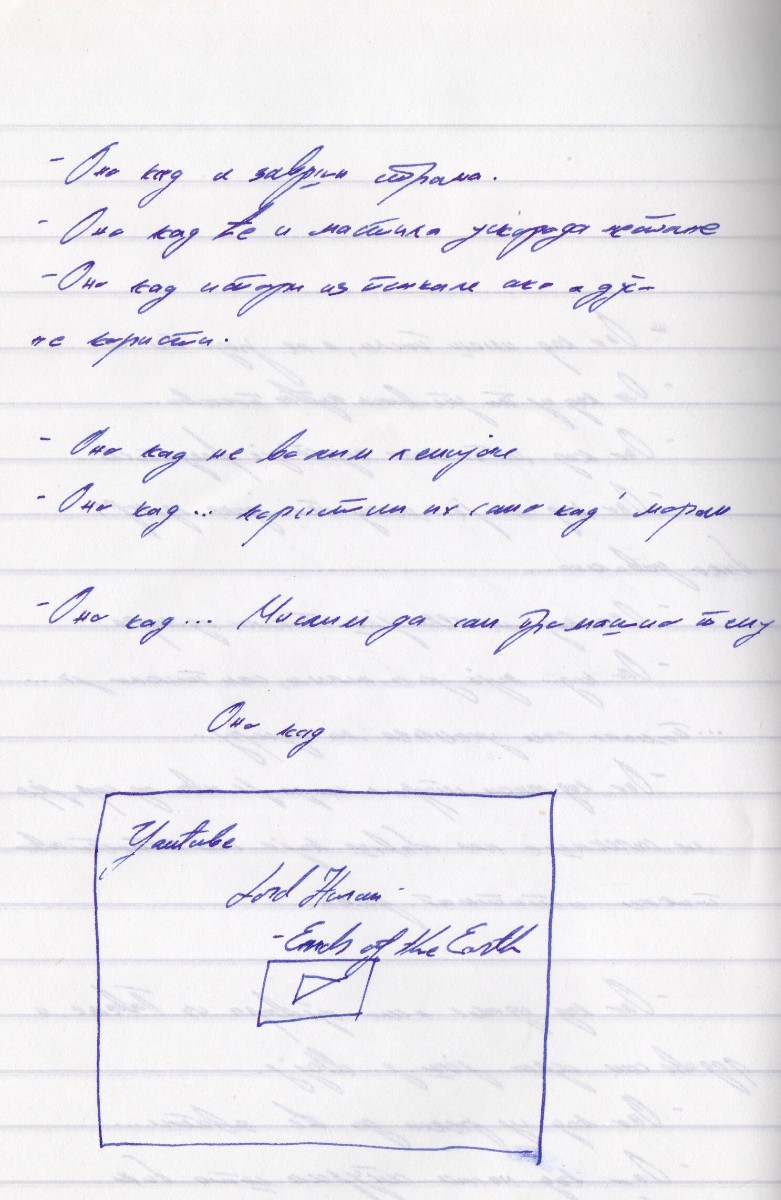 - Оно кад и заврши страна.
- Оно кад ће и мастила ускоро да нестане
- Оно кад испари из пенкала ако се дуго
не користи.
- Оно кад не волим хемијске
- Оно кад... користим их само кад' морам
- Оно кад... Мислим да сам промашио тему
Оно кад
Youtube
Lord Huron -
- Ends of the Earth